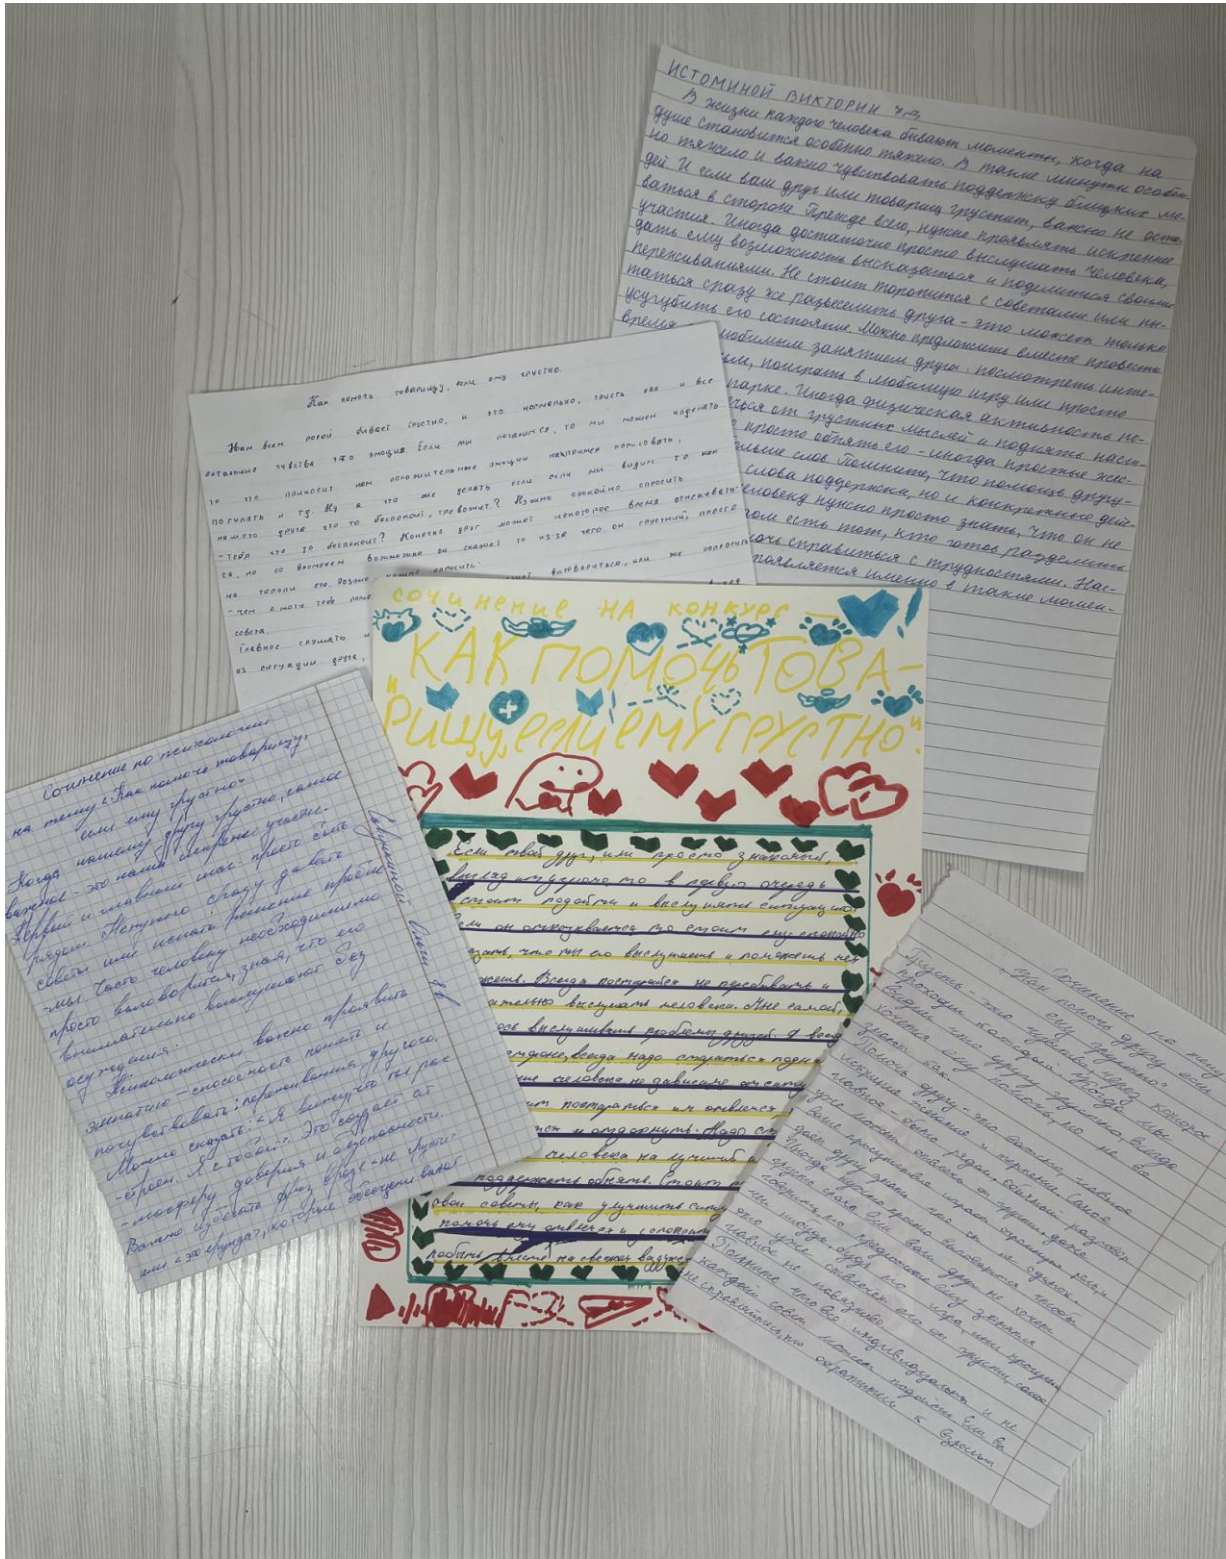 ИСТОМИНОЙ ВИКТОРИИ
В жизни каждого человека бывают моменты, когда на
душе становится особенно тяжело. В такие минуты особен-
но тяжело и важно чувствовать поддержку близких лю-
дей И если ваш друг или товарищ грустит, важно не оста-
ваться в стороне Прежде всего, нужно проявлять искренние
участия. Иногда достаточно просто выслушать человека,
дать ему возможность высказаться и поделиться своими
переживаниями. Не стоит торопится с советами или пы-
таться сразу же развеселить друга - это может только
усугубить его состояние Можно предложить вместе провести
время любимым занятием друга: посмотреть инте-
поиграть в любимую игру или просто
парке. Иногда физическая активность по-
от грустных мыслей и поднять наст-
просто обнять его - иногда простые жес-
слов Помните, что помощь другу-
слова поддержки, но и конкретные дей-
человеку нужно просто знать, что он не
есть тот, кто готов разделить
справиться с трудностями. Нас-
появляется именно в такие момен-
Как помочь товарищу, если ему грустно.
Нам всем порой бывает грустно, и это нормально, грусть как и все
остальные чувства это эмоция. Если мы печалимся, то мы можем поделать
то что приносит нам положительные эмоции например порисовать,
погулять и тд. Ну а что же делать если если мы видим то как
нашего друга что то беспокоит, тревожит? Нужно спокойно спросить
- Тебя что то беспокоит? Конечно друг может некоторое время отнекивать-
ся, но со временем возможно он скажет то из-за чего он грустный, просто
не торопи его.
- чем я могу тебе
совета.
Главное слушать и
из ситуации друга,
СОЧИНЕНИЕ НА КОНКУРС —
"КАК ПОМОЧЬ ТОВА-
РИЩУ, ЕСЛИ ЕМУ ГРУСТНО".
Если твой друг, или просто знакомый,
выглядит угрюмо, то в первую очередь
стоит подойти и выслушать ситуацию.
Если он отказывается то стоит ему спокойно
что ты его выслушаешь и поможешь
Всегда постарайся не перебивать и
выслушать человека. Мне самой,
выслушивать проблемы друзей. Я
всегда надо стараться
человека не зависимо от
постараться их отвлечь
и отдохнуть. Надо
человека на лучший
поддержать обнять. Стоит
свои советы, как улучшить
помочь ему отвлечься и успокоит
побыть вместе на свежем воздухе
Сочинение по психологии
на тему: «Как помочь товарищу,
если ему грустно»
Когда нашему другу грустно, самое
важное - это наше искреннее участи-
Первый и главный шаг- просто быть
рядом. Ненужно сразу давать
советы или искать решение пробле-
-мы. Часто человеку необходимо
просто выговорится, зная, что его
внимательно выслушают без
осуждения.
Психологически важно проявить
эмпатию - способность понять и
почувствовать переживания другого.
Можно сказать: «Я вижу, что ты рас
-строен. Я с тобой». Это создаёт ат
-мосферу доверия и безопасности
Важно избегать фраз вроде «не грусти»
или «это ерунда», которые обесценивают
Сочинение на тему
"Как помочь другу если
ему грустно"
Грусть - это чувство, через которое
проходил каждый. Когда мы
видим что другу грустно, всегда
хочется ему помочь, но не все
знают как.
Помочь другу - это значит
главное - быть рядом, обычный разговор
уже может отвлечь от грусти, даже
ваше присутствие играет огромную роль,
дает другу знать, что он не одинок.
Иногда нужно просто выговорится, чтобы
грусть спала Если ваш друг не хочет
говорить, то предложите ему заняться
чем нибудь, будь то игра, или прогулка
это уже отвлечет его от грусти, самое
главное не навязывать.
Помните, что все индивидуальны и не
каждый совет может подойти Если вы
не справляетесь, то обратитесь к взрослым